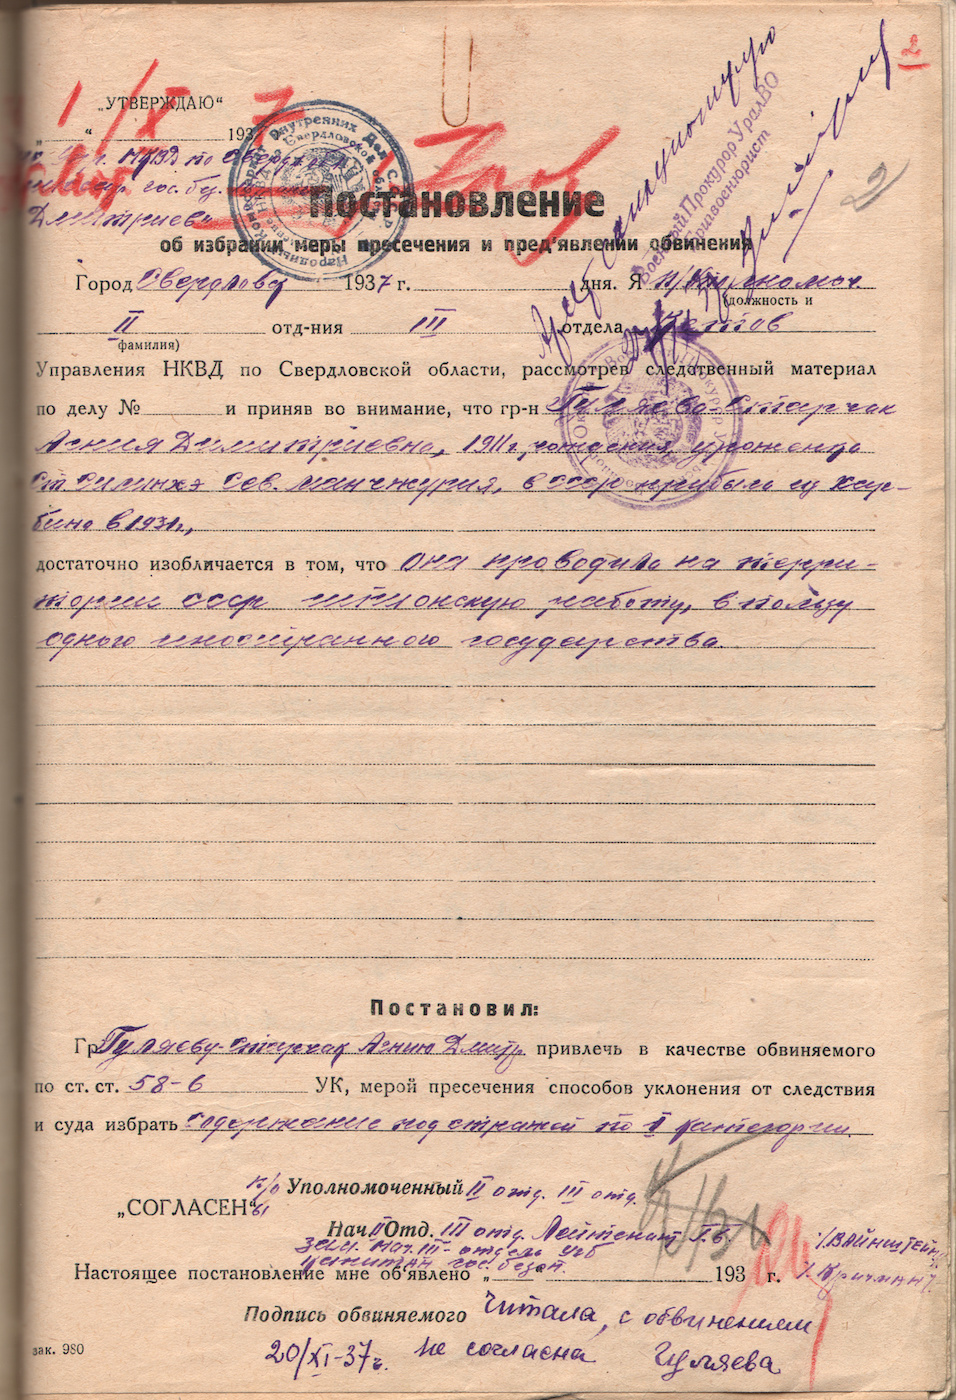 2
2
„УТВЕРЖДАЮ“
1/XI 1937
НКВД по Свердл. обл.
Дмитриев
Арест санкционирую
Военный Прокурор УралВО
Бригвоенюрист
Народный Комиссариат Внутренних Дел С.С.С.Р.
Постановление
об избрании меры пресечения и пред'явлении обвинения
Город Свердловск 1937 г. дня. Я п/уполномоч.
(должность и
II отд-ния III отдела
фамилия)
Управления НКВД по Свердловской области, рассмотрев следственный материал
по делу № и приняв во внимание, что гр-н Гуляева-Старчак
Ксения Димитриевна, 1911 г. рождения, уроженка
ст. Силинхэ Сев. Манчжурия, в СССР прибыла из Хар-
бина в 1931 г.,
достаточно изобличается в том, что она проводила на терри-
тории СССР шпионскую работу, в пользу
одного иностранного государства.
Постановил:
Гр Гуляеву-Старчак Ксению Дмитр привлечь в качестве обвиняемого
по ст. ст. 58-6 УК, мерой пресечения способов уклонения от следствия
и суда избрать содержание под стражей по I категории.
п/о Уполномоченный II отд. III отд.
„СОГЛАСЕН“
Нач II Отд. III отд. Лейтенант Г.Б. /ВАЙНШТЕЙН/
зам. нач. III-отдела УГБ
капитан гос. безоп. /Кричман/
Настоящее постановление мне об'явлено „ 193 г.
Подпись обвиняемого Читала, с обвинением
20/XI-37 г. не согласна Гуляева
зак. 980